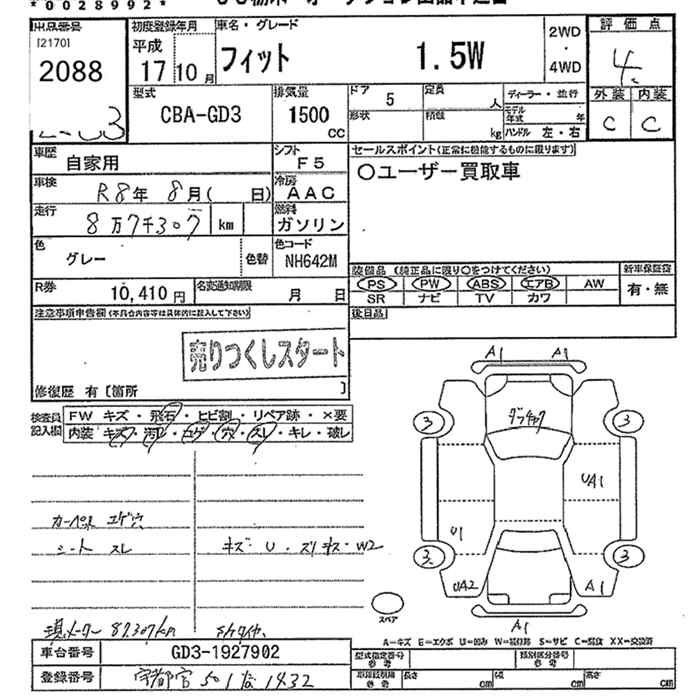 *0028992*
出品番号
[2170]
2088
初度登録年月
平成
17 10月
車名・グレード
フィット 1.5W
2WD
・
4WD
評価点
4
外装 内装
C C
型式
CBA-GD3
排気量
1500
CC
ドア 5
形状
定員 人
積載 kg
ディーラー・並行
モデル年式 年
ハンドル 左・右
車歴
自家用
シフト
F5
セールスポイント(正常に機能するものに限ります)
〇ユーザー買取車
車検
R8年 8月( 日)
冷房
AAC
走行
8万7千307 km
燃料
ガソリン
色
グレー
色替
色コード
NH642M
装備品 (純正品に限り〇をつけてください)
PS PW ABS エアB AW
SR ナビ TV カワ
新車保証書
有・無
R券
10,410円
名変通知期限
月 日
後日品
注意事項申告欄(不具合内容等は具体的に記入して下さい)
売りつくしスタート
修復歴 有〔箇所 〕
検査員記入欄
FW キズ・飛石・ヒビ割・リペア跡・×要
内装 キズ・汚レ・コゲ・穴・スレ・キレ・破レ
カーペット コゲ穴
シート スレ
キズ・U・スリキズ・W2
現メーター 87,307km
A1 A1
3 3
ダンチャク
UA1
U1
3 3
UA2 A1
A1
スペア
A―キズ E―エクボ U―凹み W―補修跡 S―サビ C―腐食 XX―交換済
車台番号
GD3-1927902
登録番号
宇都宮 501 な 1432
型式指定番号
参考
類別区分番号
参考
車両数制限
参考
長さ cm
幅 cm
高さ cm